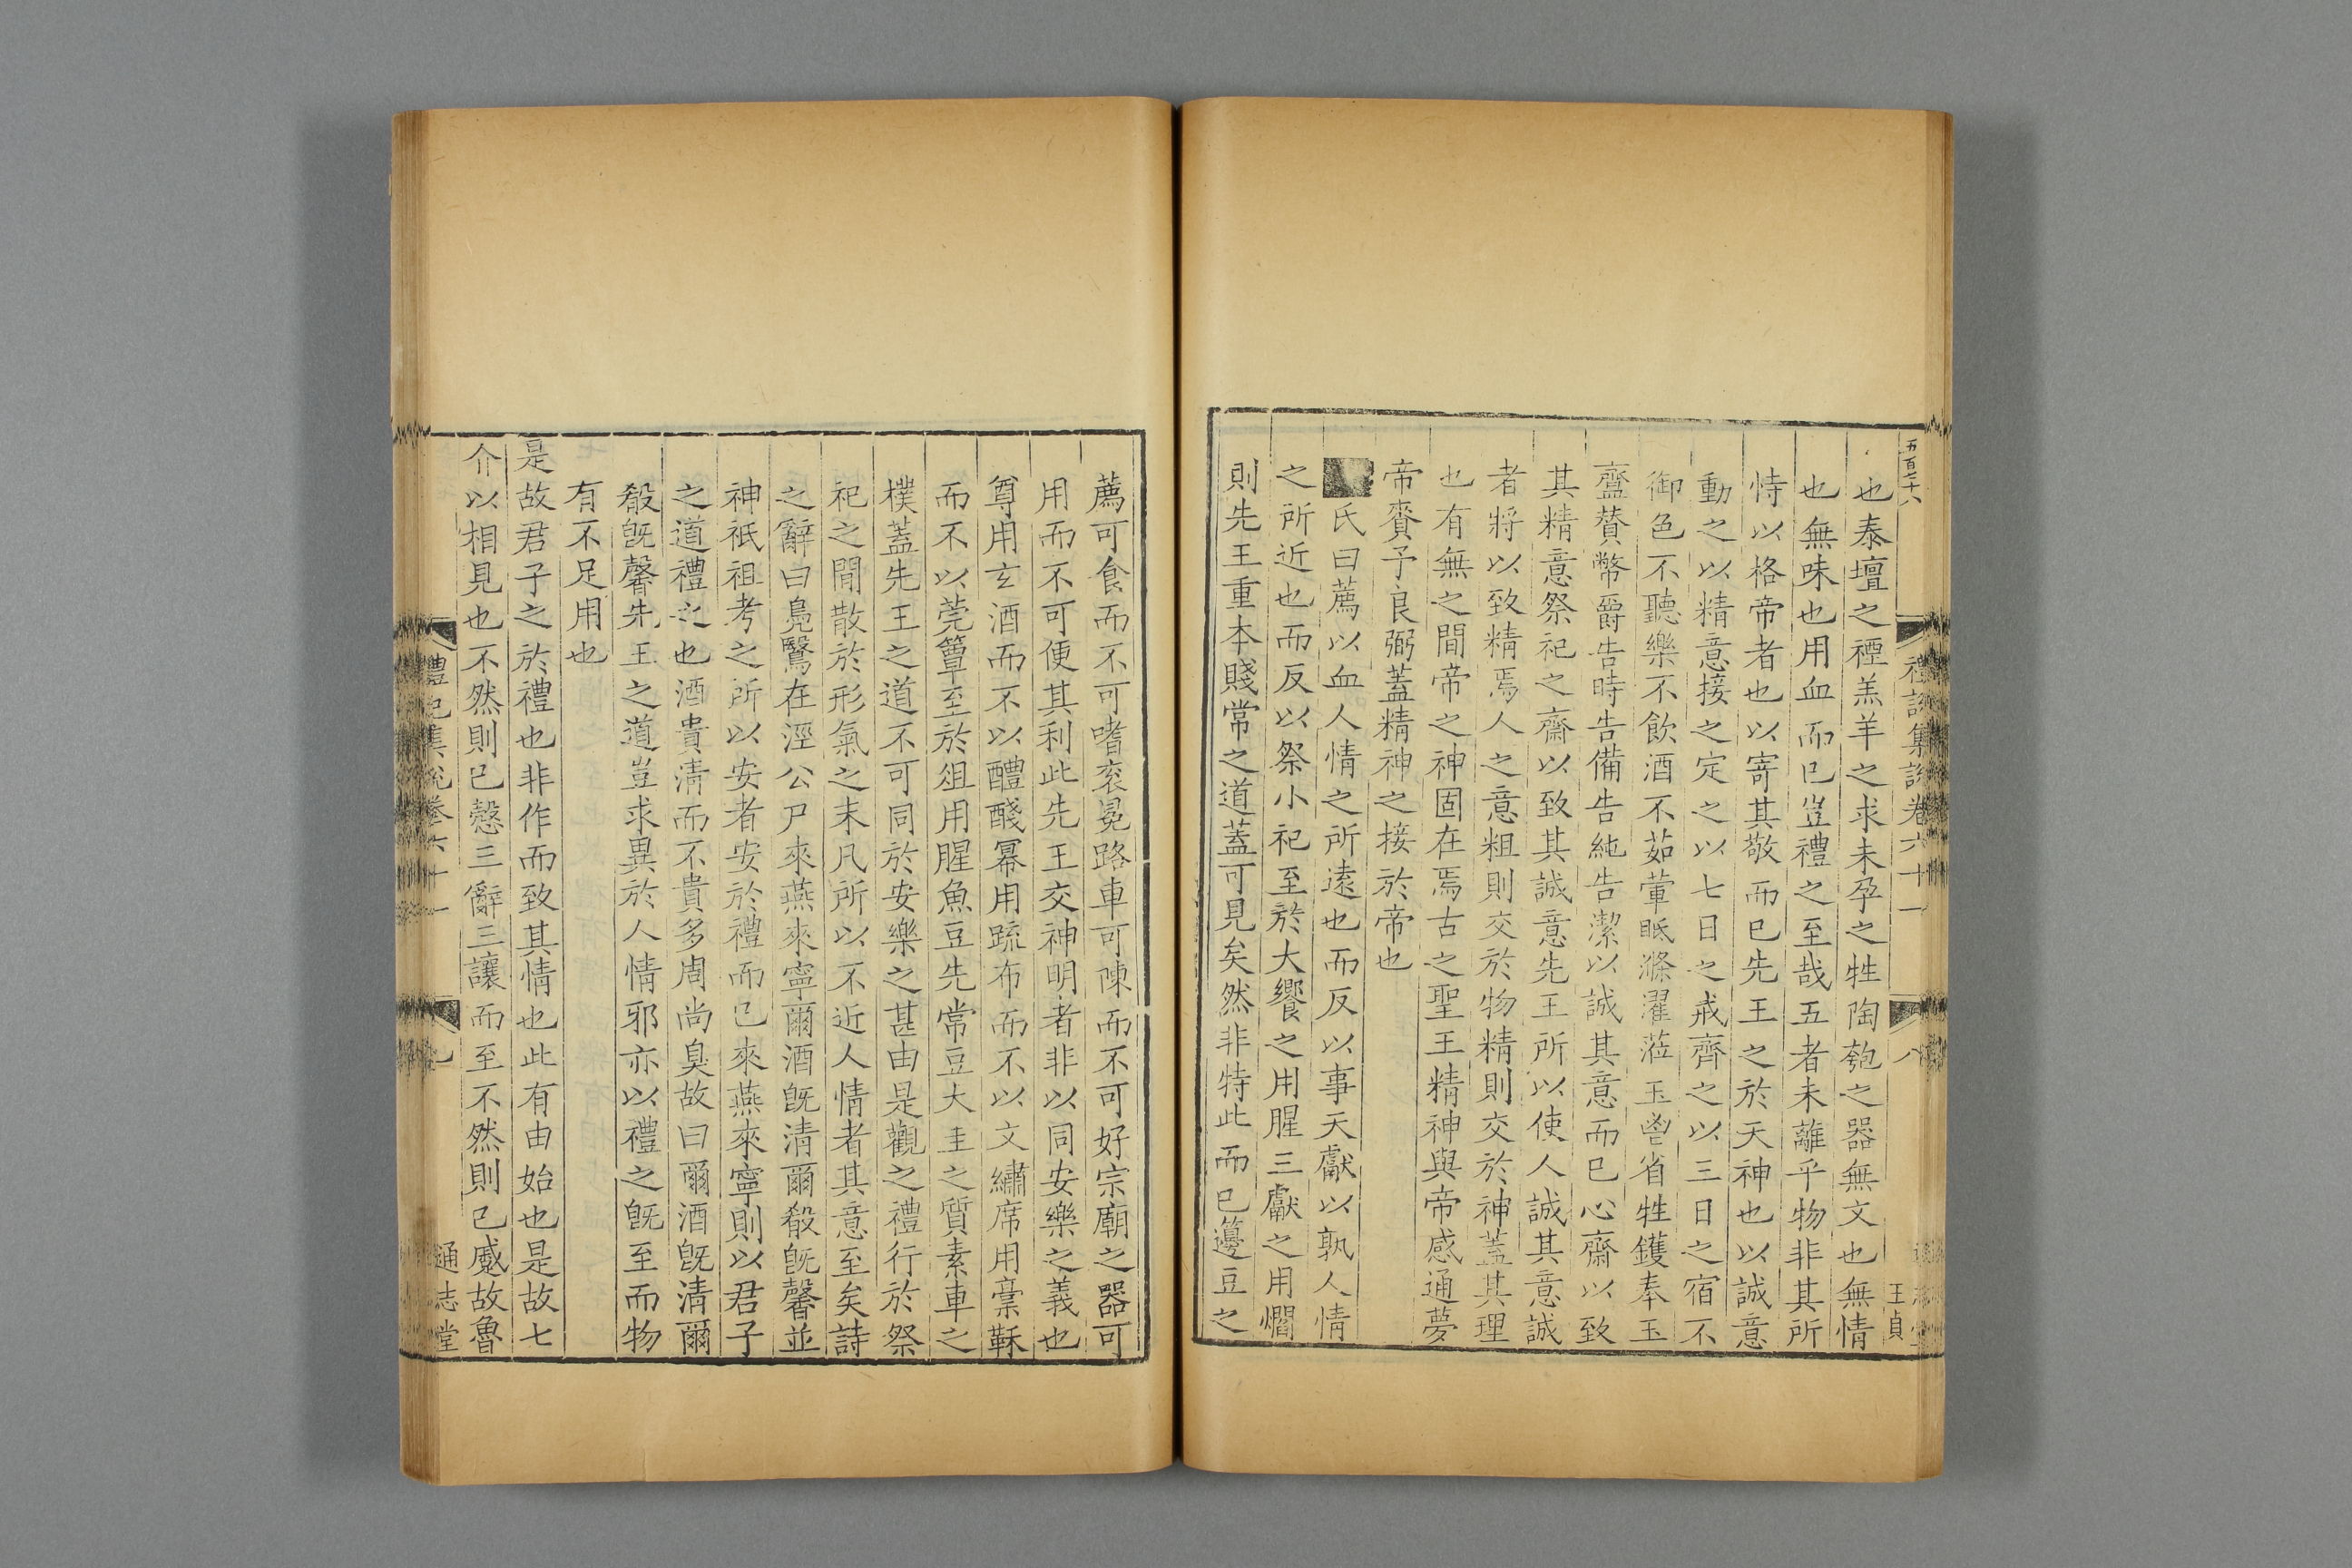 五百七十八
禮記集說卷六十一
八
王貞
也泰壇之禋羔羊之求未孕之牲陶匏之器無文也無情
也無味也用血而已豈禮之至哉五者未離乎物非其所
恃以格帝者也以寄其敬而已先王之於天神也以誠意
動之以精意接之定之以七日之戒齊之以三日之宿不
御色不聽樂不飲酒不茹葷眂滌濯蒞玉鬯省牲鑊奉玉
齍賛幣爵告時告備告純告潔以誠其意而已心齋以致
其精意祭祀之齋以致其誠意先王所以使人誠其意誠
者將以致精焉人之意粗則交於物精則交於神蓋其理
也有無之間帝之神固在焉古之聖王精神與帝感通夢
帝賚予良弼蓋精神之接於帝也
氏曰薦以血人情之所遠也而反以事天獻以孰人情
之所近也而反以祭小祀至於大饗之用腥三獻之用爓
則先王重本賤常之道蓋可見矣然非特此而已籩豆之
薦可食而不可嗜衮冕路車可陳而不可好宗廟之器可
用而不可便其利此先王交神明者非以同安樂之義也
尊用玄酒而不以醴醆冪用疏布而不以文繡席用稾鞂
而不以莞簟至於俎用腥魚豆先常豆大圭之質素車之
樸蓋先王之道不可同於安樂之甚由是觀之禮行於祭
祀之間散於形氣之末凡所以不近人情者其意至矣詩
之辭曰鳧鷖在涇公尸來燕來寧爾酒旣清爾殽旣馨並
神祇祖考之所以安者安於禮而已來燕來寧則以君子
之道禮之也酒貴清而不貴多周尚臭故曰爾酒旣清爾
殽旣馨先王之道豈求異於人情邪亦以禮之旣至而物
有不足用也
是故君子之於禮也非作而致其情也此有由始也是故七
介以相見也不然則已慤三辭三讓而至不然則已蹙故魯
禮記集說卷六十一
通志堂